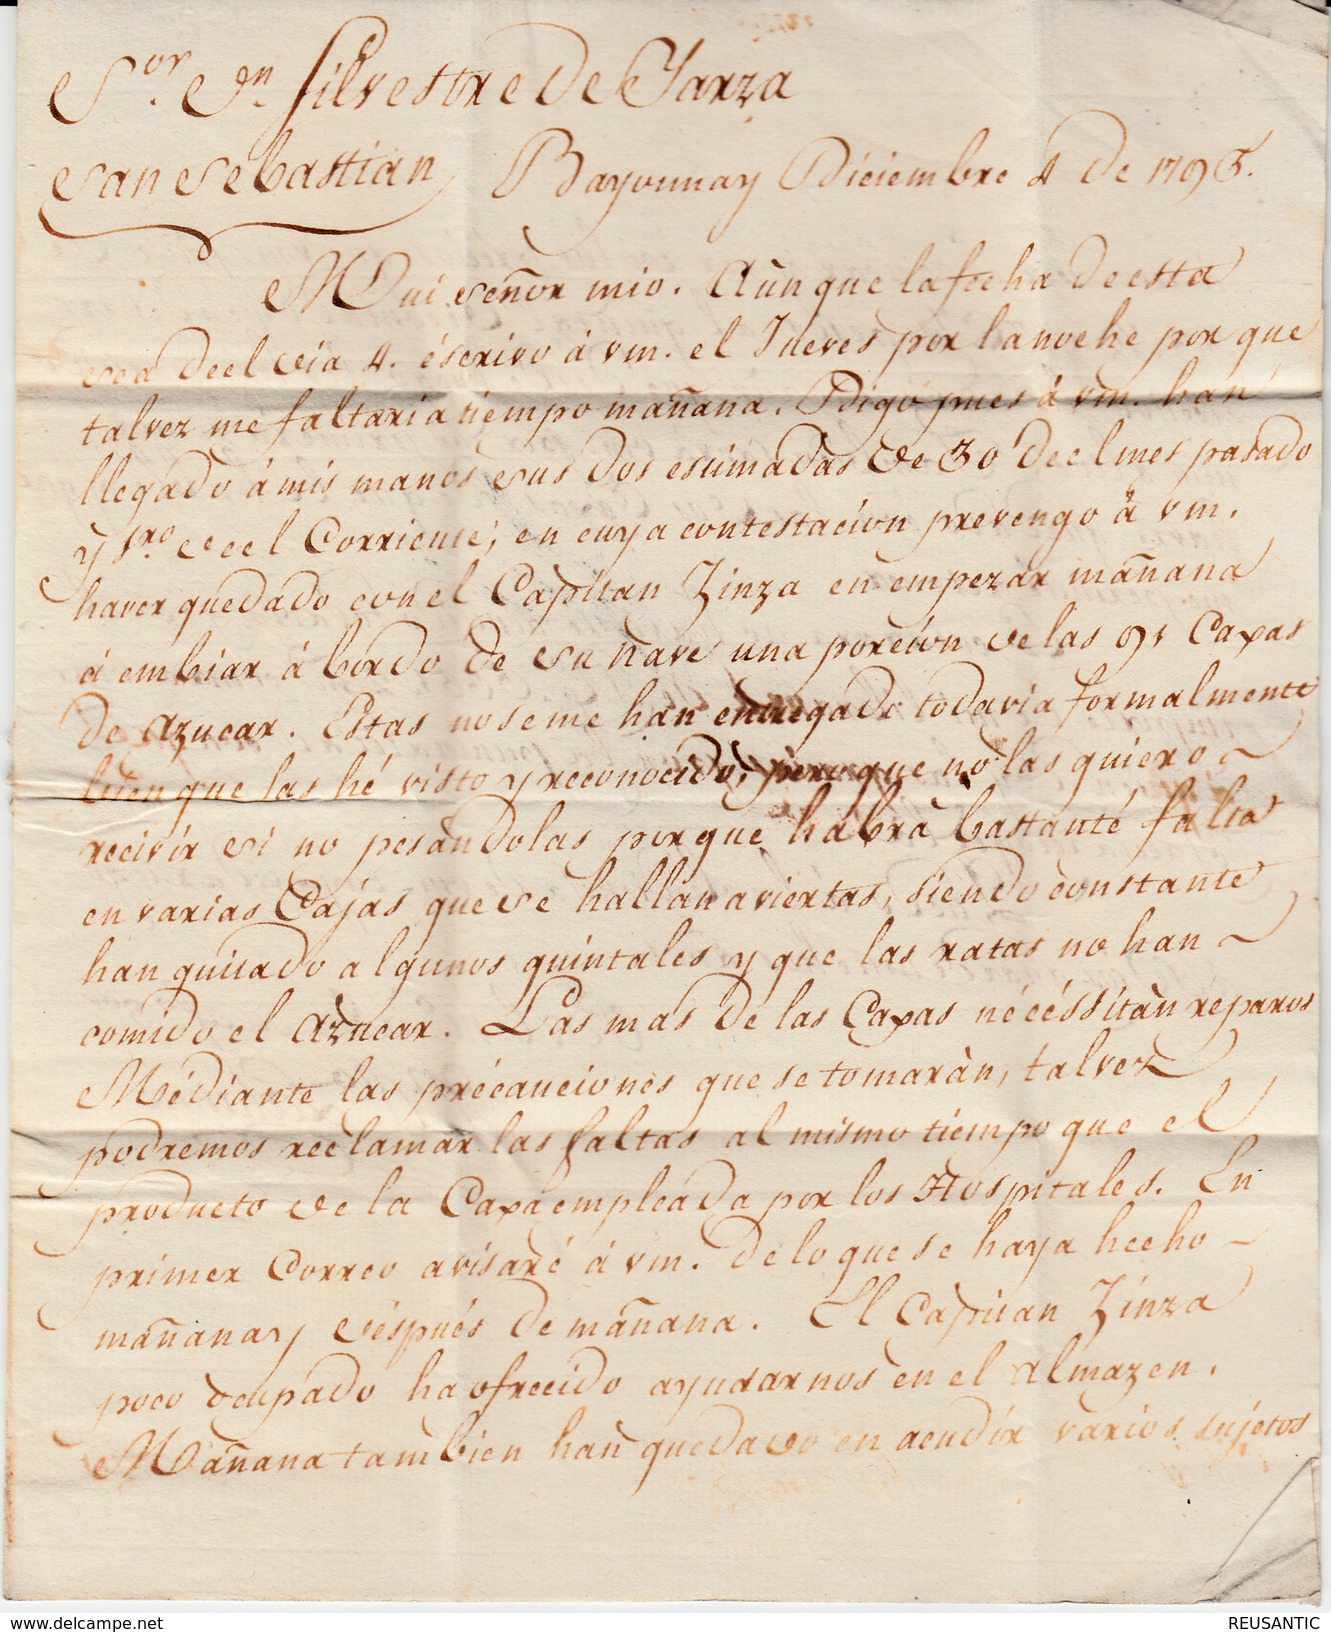 Sor. Dn. Silvestre de Yarza
San Sebastian Bayonna y Diciembre 4 de 1795.
Mui señor mio. Aùnque la fecha de esta
sea deel dia 4. éscrivo à vm. el Jueves por la noche por que
talvez me faltaria tiempo mañana. Digo pues à vm. han
llegado à mis manos sus dos estimadas de 30 deel mes pasado
y 1ro. deel Corriente; en cuya contestacion prevengo à vm.
haver quedado con el Capitan Zinza en empezar mañana
à embiar à bordo de su Nave una porcion de las 91 Caxas
de Azucar. Estas no se me han entregado todavia formalmente
bien que las hé visto y reconocido, pero que no las quiero
recivir si no pesandolas porque habrà bastanté falta
en varias Cajas que se hallan aviertas, siendo constante
han quitado algunos quintales y que las ratas no han
comido el Azucar. Las mas de las Caxas nécéssitàn reparos
Médiante las précauciones que se tomaràn, talvez
podremos reclamar las faltas al mismo tiempo que el
producto de la Caxa empleáda por los Hospitales. En
primer Correo avisaré à vm. de lo que se haya hecho
mañana y déspués de mañana. El Capitan Zinza
poco ocupado ha ofrecido ayudarnos en el Almazen.
Mañana tambien han quedado en acudir varios sujetos
REUSANTIC